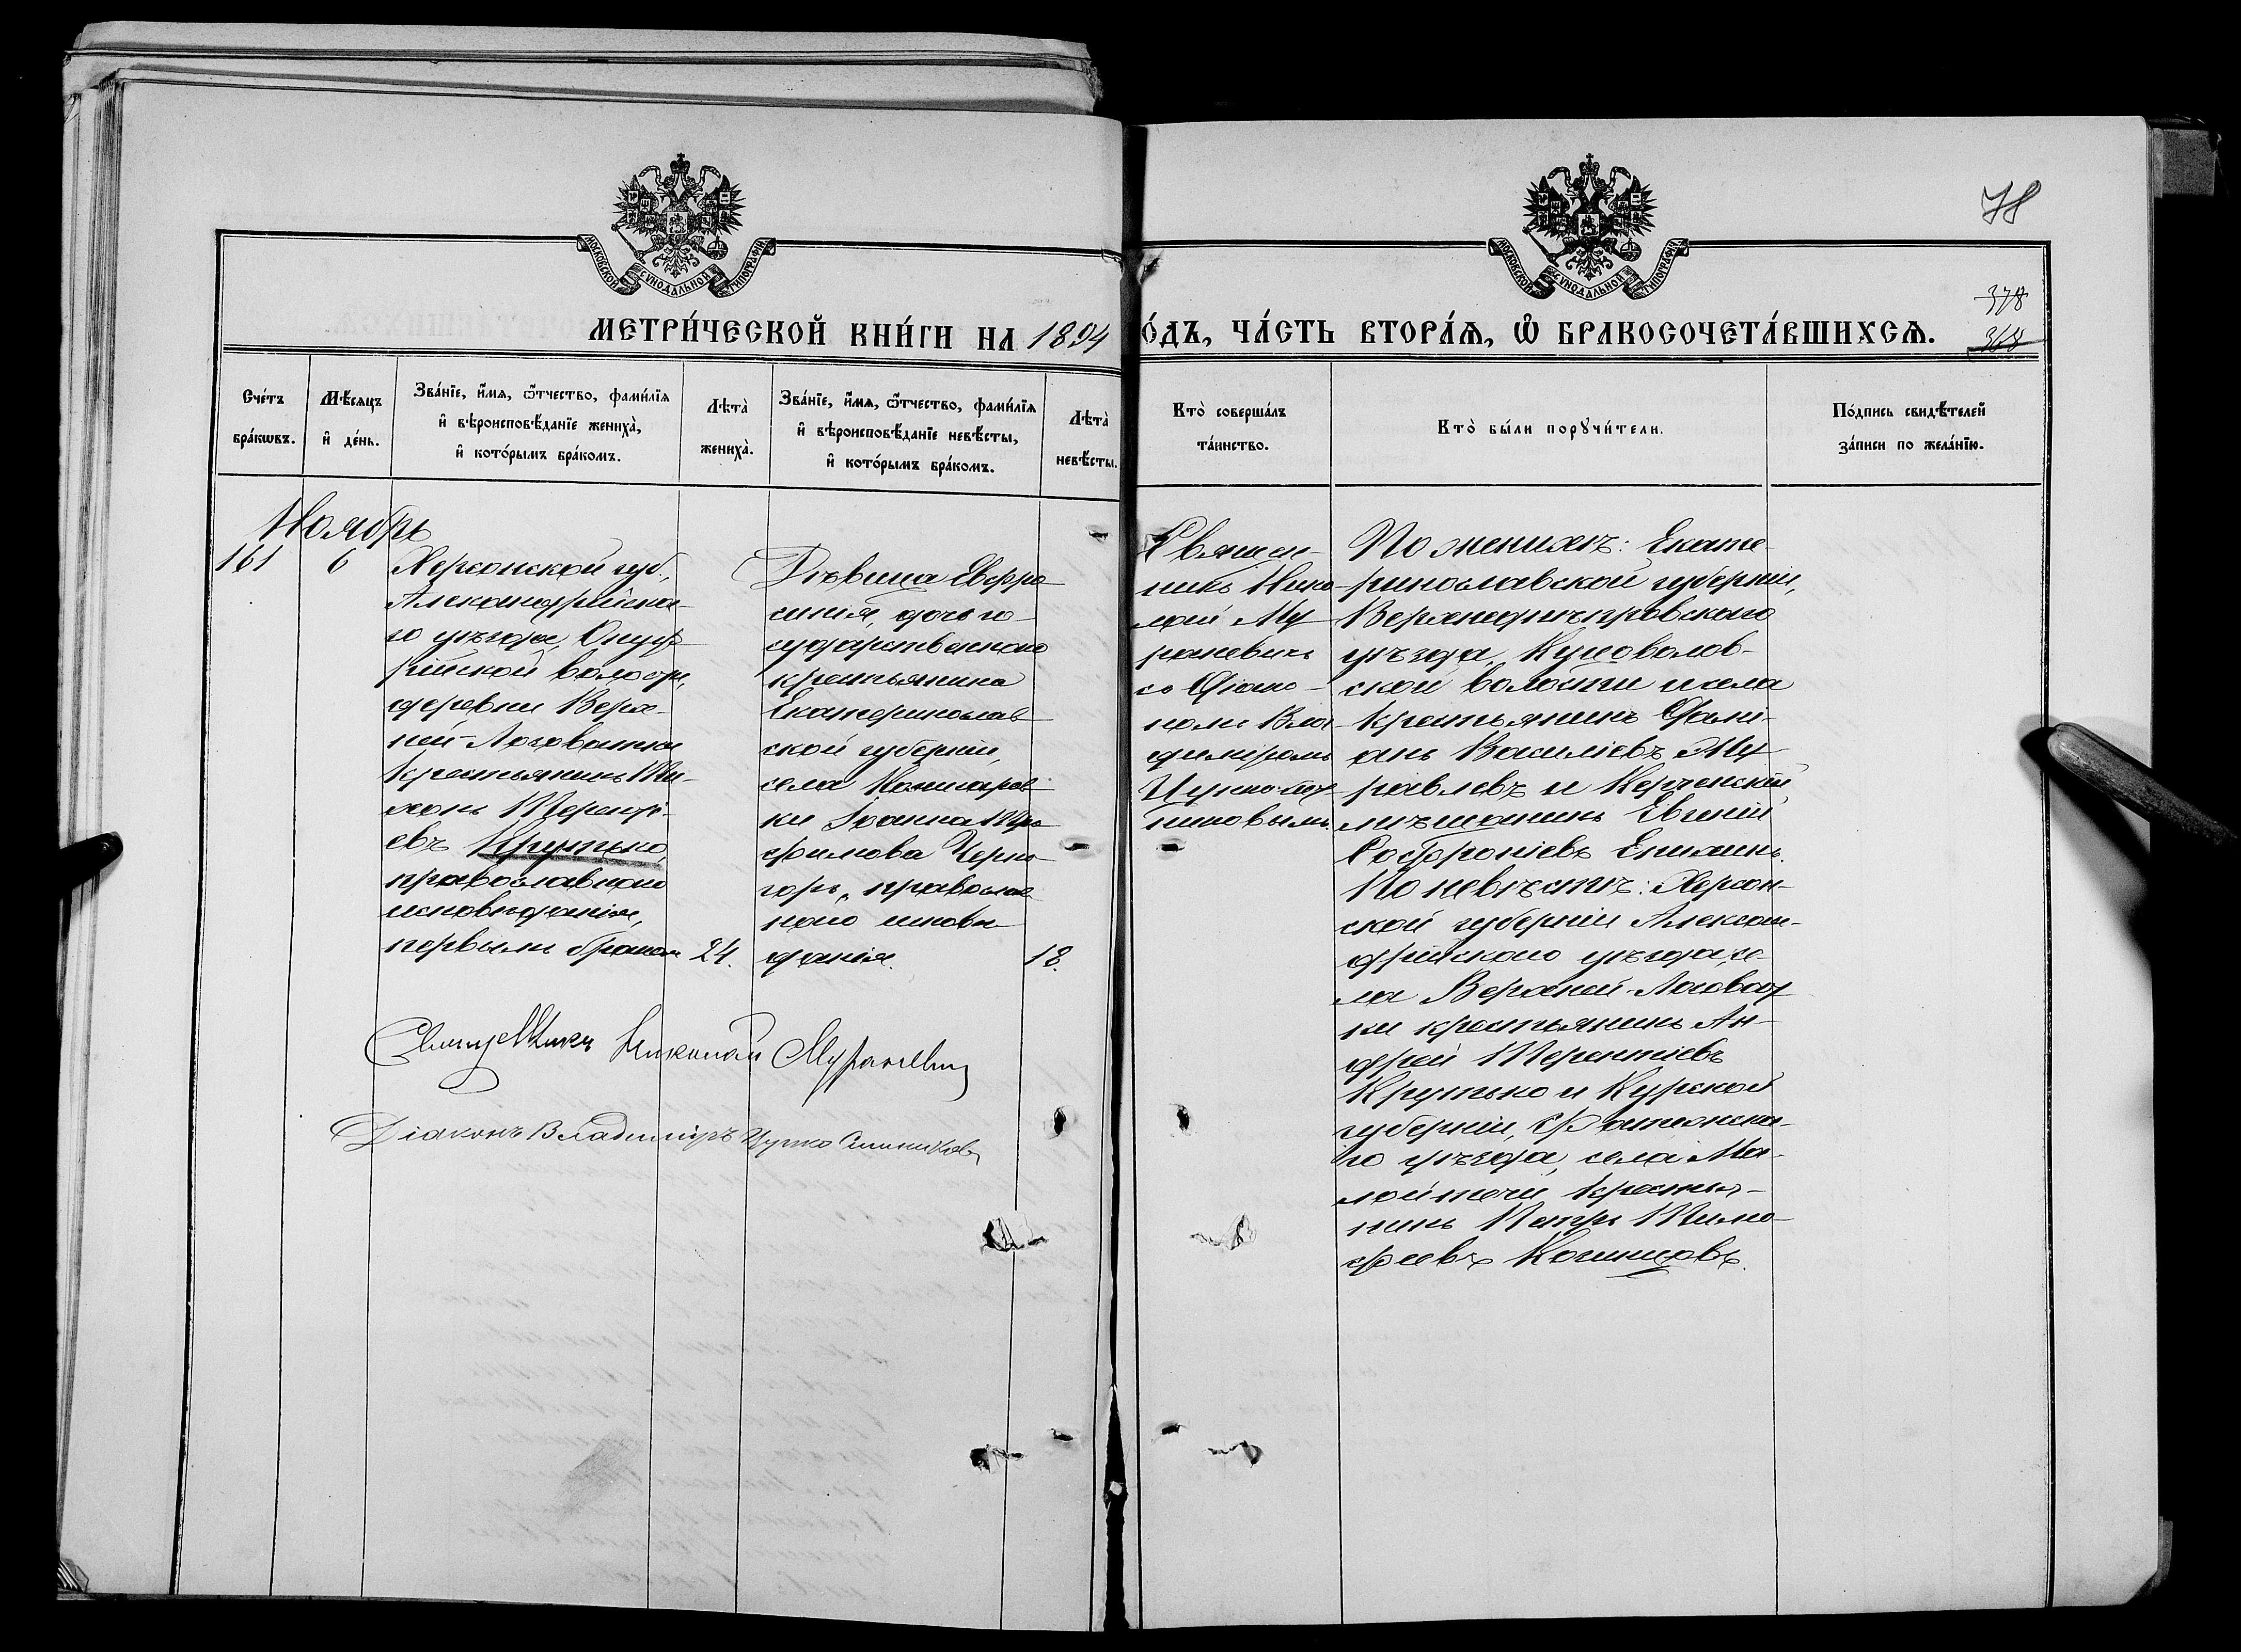 МОСКОВСКОЙ СѴНОДАЛЬНОЙ ТИПОГРАФІИ
МОСКОВСКОЙ СѴНОДАЛЬНОЙ ТИПОГРАФІИ
78
378
368
МЕТРИ́ЧЕСКОЙ КНИ́ГИ НА 1894
О́ДЪ, ЧА́СТЬ ВТОРА́Ѧ, Ѡ҆ БРАКОСОЧЕТА́ВШИХСѦ.
Сче́тъ бра́кѡвъ.
Мѣ́сѧцъ и҆ де́нь.
Зва́нїе, и҆́мѧ, ѻ҆́тчество, фами́лїѧ
и҆ вѣроисповѣ́данїе жениха̀,
и҆ кото́рымъ бра́комъ.
Лѣ́та̀ жениха̀.
Зва́нїе, и҆́мѧ, ѻ҆́тчество, фами́лїѧ
и҆ вѣроисповѣ́данїе невѣ́сты,
и҆ кото́рымъ бра́комъ.
Лѣ́та̀ невѣ́сты.
Кто̀ соверша́лъ
та́инство.
Кто̀ бы́ли порꙋчи́тели.
По́дпись свидѣ́телей
за́писи по жела́нїю.
Ноябрь
161
6
Херсонской губ.,
Александрійска-
го уѣзда, Онуф-
рійской волости,
деревни Верх-
ней-Лозоватки
крестьянинъ Ти-
хонъ Теренті-
евъ Крутько,
православнаго
исповѣданія,
первымъ бракомъ
24.
Дѣвица Евфро
синія, дочь го-
сударственнаго
крестьянина
Екатеринослав
ской губерніи,
села Комиссаров
ки Іоанна Тро
фимова Черно-
горъ, православ
наго исповѣ
данія.
18.
Священ-
никъ Нико-
лай Му
раневичъ
съ Діако-
номъ Вла
диміромъ
Цупко-Сит
никовымъ.
По женихѣ: Екате-
ринославской губерніи,
Верхнеднѣпровскаго
уѣзда, Куцоволов-
ской волости и села
крестьянинъ Дамі-
анъ Василіевъ Му-
равлевъ и Керченскій
мѣщанинъ Евгеній
Софроніевъ Епихинъ.
По невѣстѣ: Херсон-
ской губерніи Алексан-
дрійскаго уѣзда, се-
ла Верхней-Лозоват
ки крестьянинъ Ан-
дрей Терентіевъ
Крутько и Курской
губерніи, Фатежска-
го уѣзда, села Ма-
крестья-
нинъ Петръ Тимо-
феевъ
Священникъ Николай Мураневич
Діаконъ Владиміръ Цупко Ситниковъ